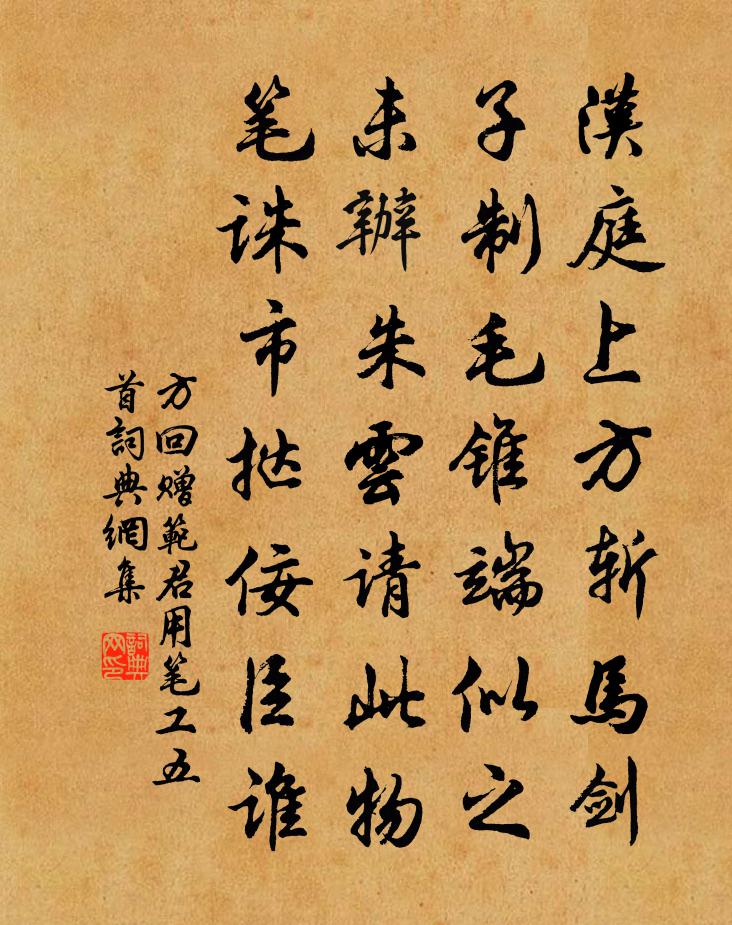 漢庭上方斩馬剑
子制毛锥端似之
未辦朱雲请此物
笔诛市挞佞臣谁
方回赠範君用笔工五
首詞典網集
詞典網印